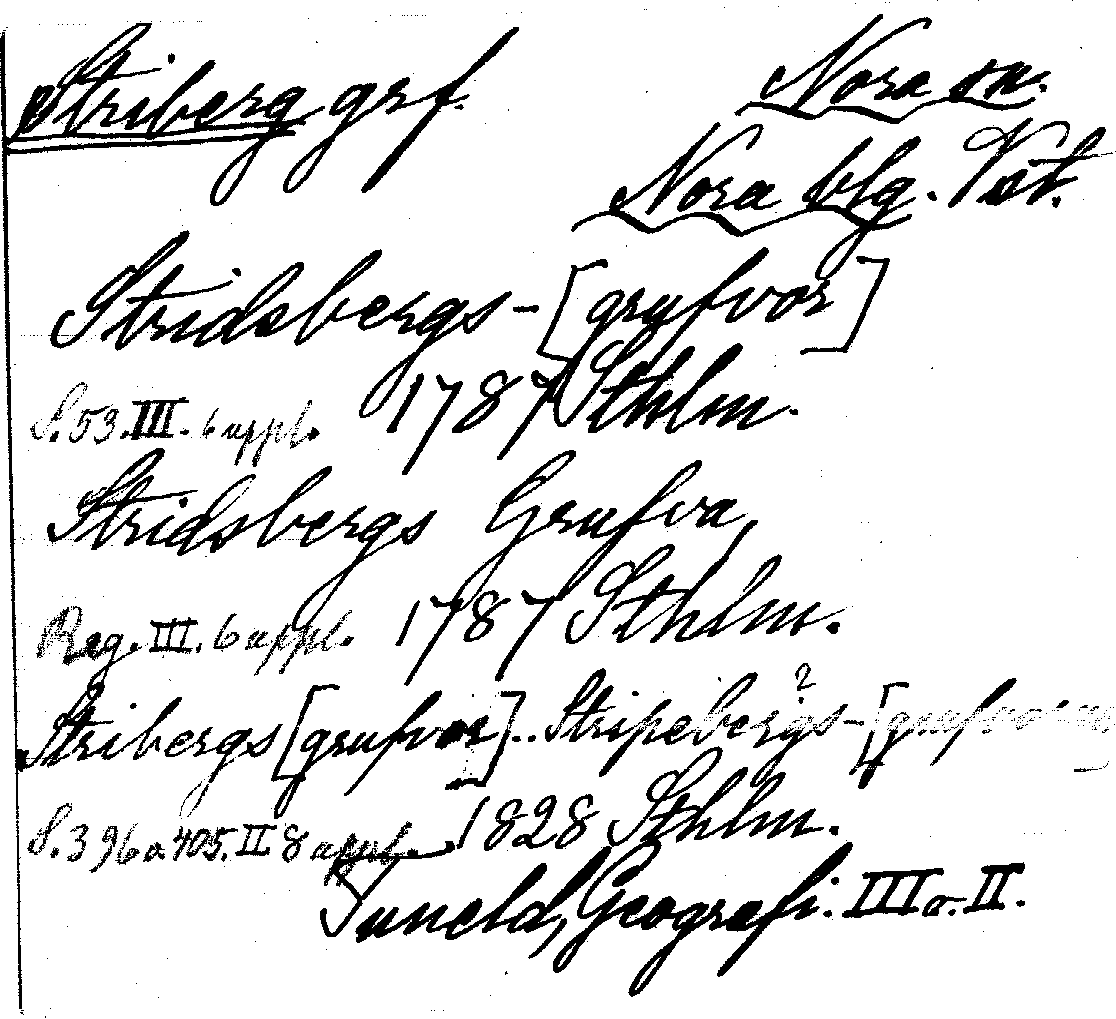 Striberg grf. Nora sn.
Nora blg. Vst.
Stridsbergs-[grufvor]
S. 53. III. 6 uppl. 1787 Sthlm.
Stridsbergs Grufva,
Reg. III. 6 uppl. 1787 Sthlm.
Stribergs [grufvor].. Stripebergs-[grufvorna]
?
S. 396 o. 405. II 8 uppl. 1828 Sthlm.
Tuneld, Geografi. III o. II.